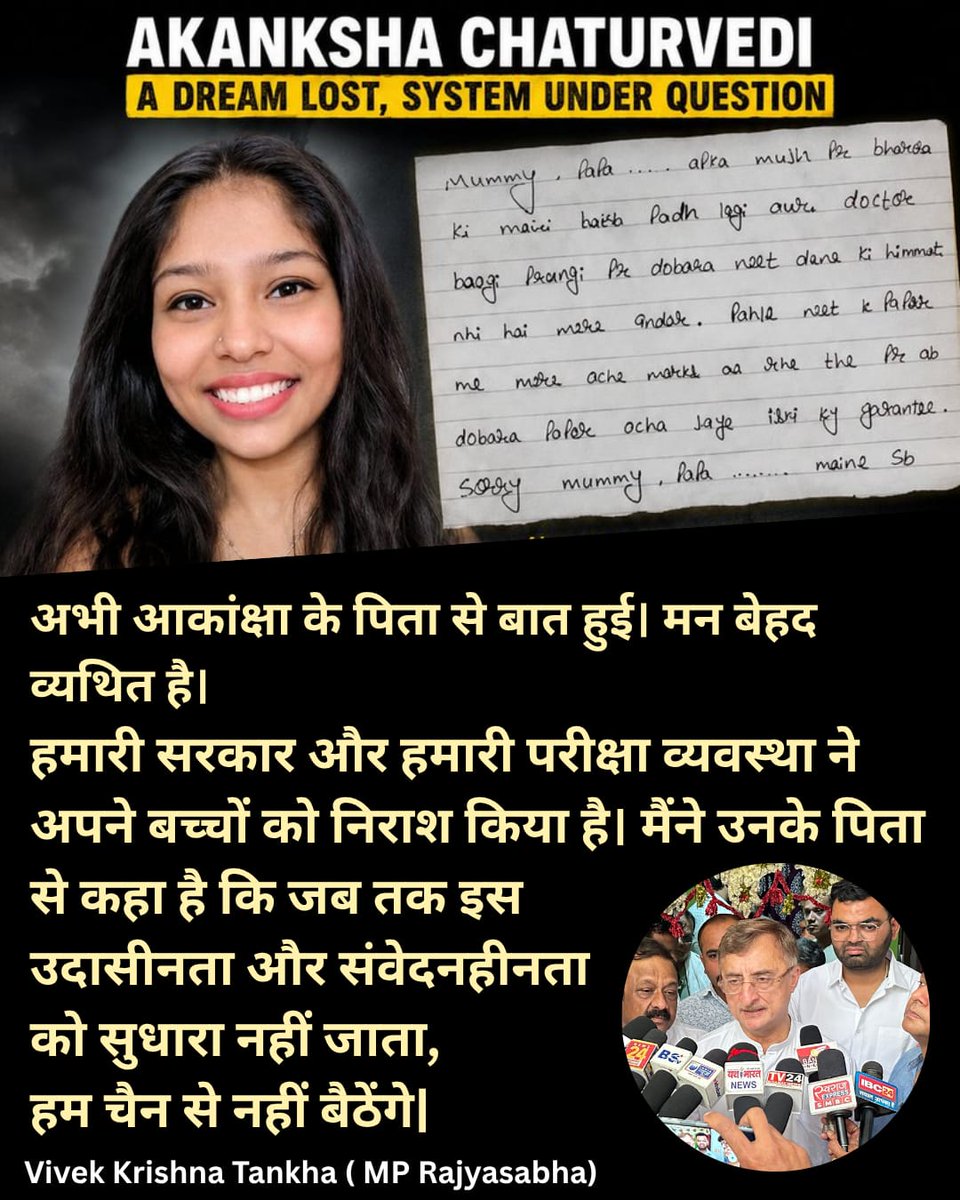 AKANKSHA CHATURVEDI
A DREAM LOST, SYSTEM UNDER QUESTION
Mummy, PaPa ..... apka mujh Pr bharosa
ki maini padh lggi aur doctor
Pr dobara neet dene ki himmat
nhi hai mere andar. Pahle neet k PaPar
me mere ache marks aa rhe the Pr ab
dobara PaPar ocha Jaye iski ky garantee.
Sorry mummy, PaPa ........ maine Sb
अभी आकांक्षा के पिता से बात हुई। मन बेहद
व्यथित है।
हमारी सरकार और हमारी परीक्षा व्यवस्था ने
अपने बच्चों को निराश किया है। मैंने उनके पिता
से कहा है कि जब तक इस
उदासीनता और संवेदनहीनता
को सुधारा नहीं जाता,
हम चैन से नहीं बैठेंगे|
Vivek Krishna Tankha ( MP Rajyasabha)
NEWS
TV24
IBC24